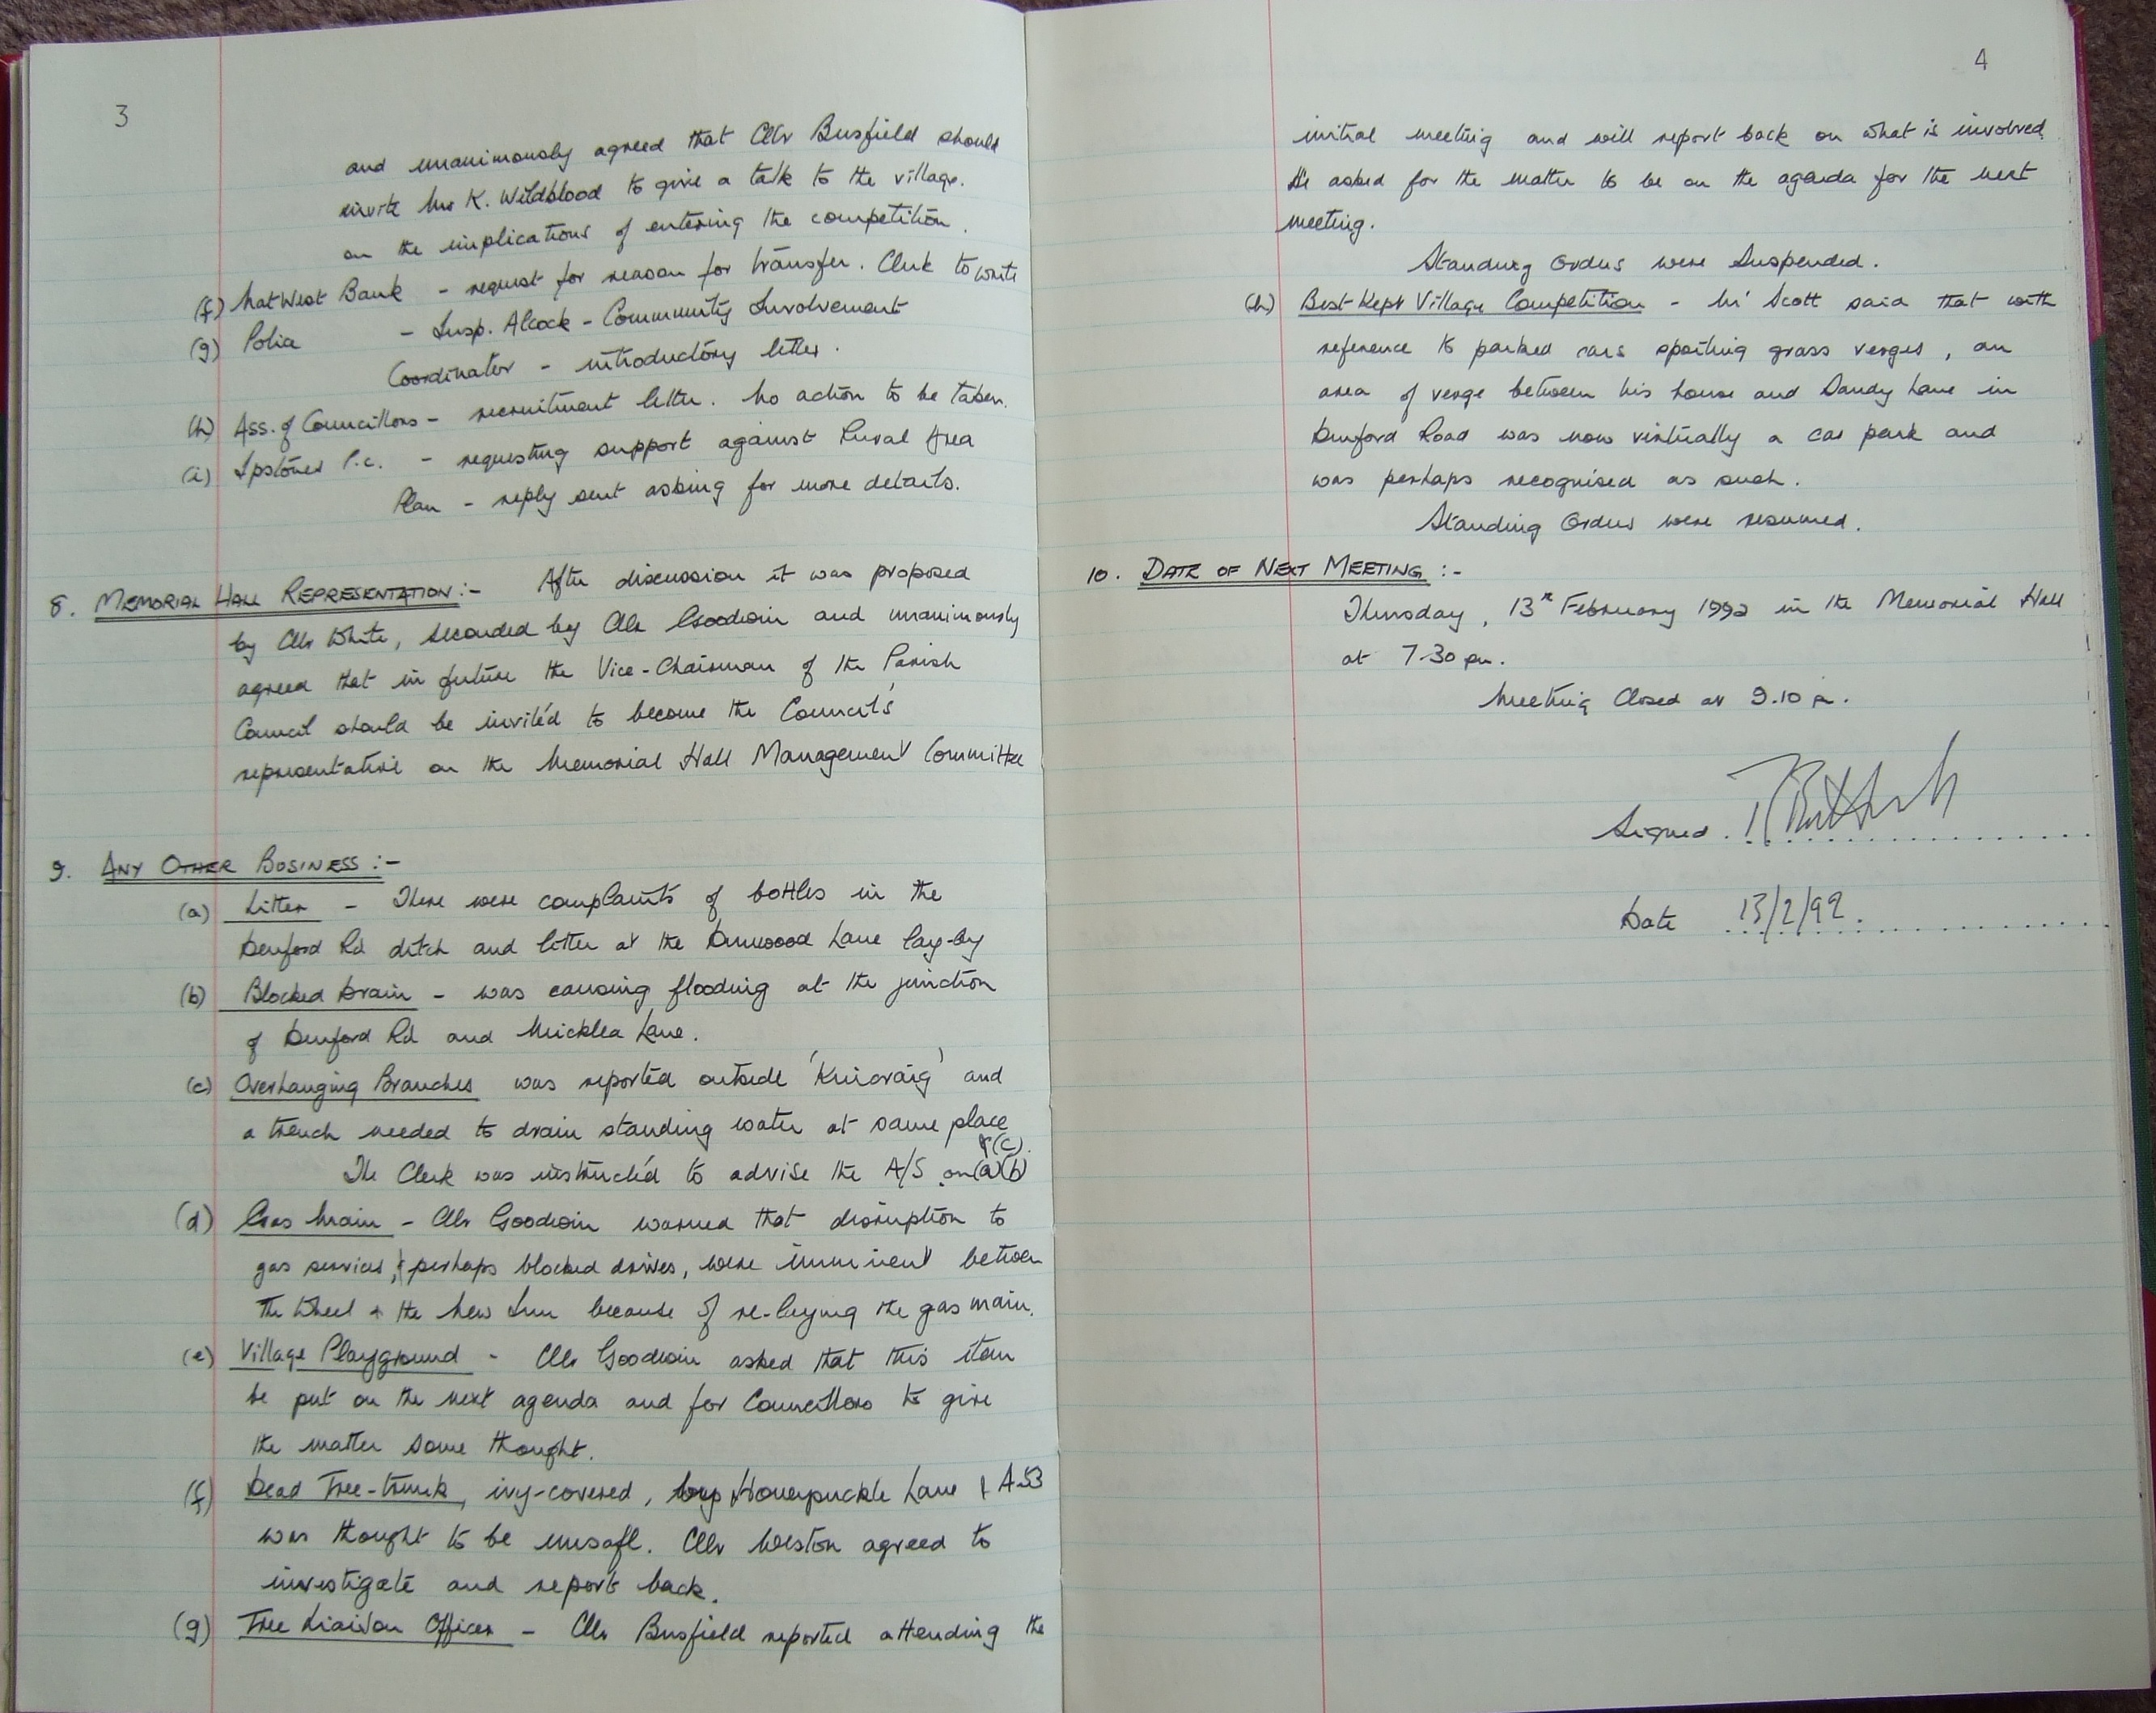 3
and unanimously agreed that Cllr Busfield should
invite Mr K. Wildblood to give a talk to the village.
on the implications of entering the competition.
(f) NatWest Bank - request for reason for transfer. Clerk to write
(g) Police - Insp. Alcock - Community Involvement
Coordinator - introductory letter.
(h) Ass. of Councillors - recruitment letter. No action to be taken.
(i) Ipstones P.C. - requesting support against Rural Area
Plan - reply sent asking for more details.
8. MEMORIAL HALL REPRESENTATION:- After discussion it was proposed
by Cllr White, seconded by Cllr Goodwin and unanimously
agreed that in future the Vice-Chairman of the Parish
Council should be invited to become the Council's
representative on the Memorial Hall Management Committee
9. ANY OTHER BUSINESS:-
(a) Litter - There were complaints of bottles in the
Denford Rd ditch and litter at the Dunwood Lane lay-by
(b) Blocked Drain - was causing flooding at the junction
of Denford Rd and Micklea Lane.
(c) Overhanging Branches was reported outside 'Kincraig' and
a trench needed to drain standing water at same place
The Clerk was instructed to advise the A/S on (a)(b) & (c).
(d) Gas Main - Cllr Goodwin warned that disruption to
gas services, & perhaps blocked drives, were imminent between
The Wheel & the New Inn because of re-laying the gas main.
(e) Village Playground - Cllr Goodwin asked that this item
be put on the next agenda and for Councillors to give
the matter some thought.
(f) Dead Tree-trunk, ivy-covered, Honeysuckle Lane & A53
was thought to be unsafe. Cllr Weston agreed to
investigate and report back.
(g) Tree Liaison Officer - Cllr Busfield reported attending the
4
initial meeting and will report back on what is involved.
He asked for the matter to be on the agenda for the next
meeting.
Standing Orders were Suspended.
(h) Best-Kept Village Competition - Mr Scott said that with
reference to parked cars spoiling grass verges, an
area of verge between his house and Dandy Lane in
Denford Road was now virtually a car park and
was perhaps recognised as such.
Standing Orders were resumed.
10. DATE OF NEXT MEETING:-
Thursday, 13th February 1992 in the Memorial Hall
at 7.30 pm.
Meeting Closed at 9.10 p.
Signed
Date 13/2/92.